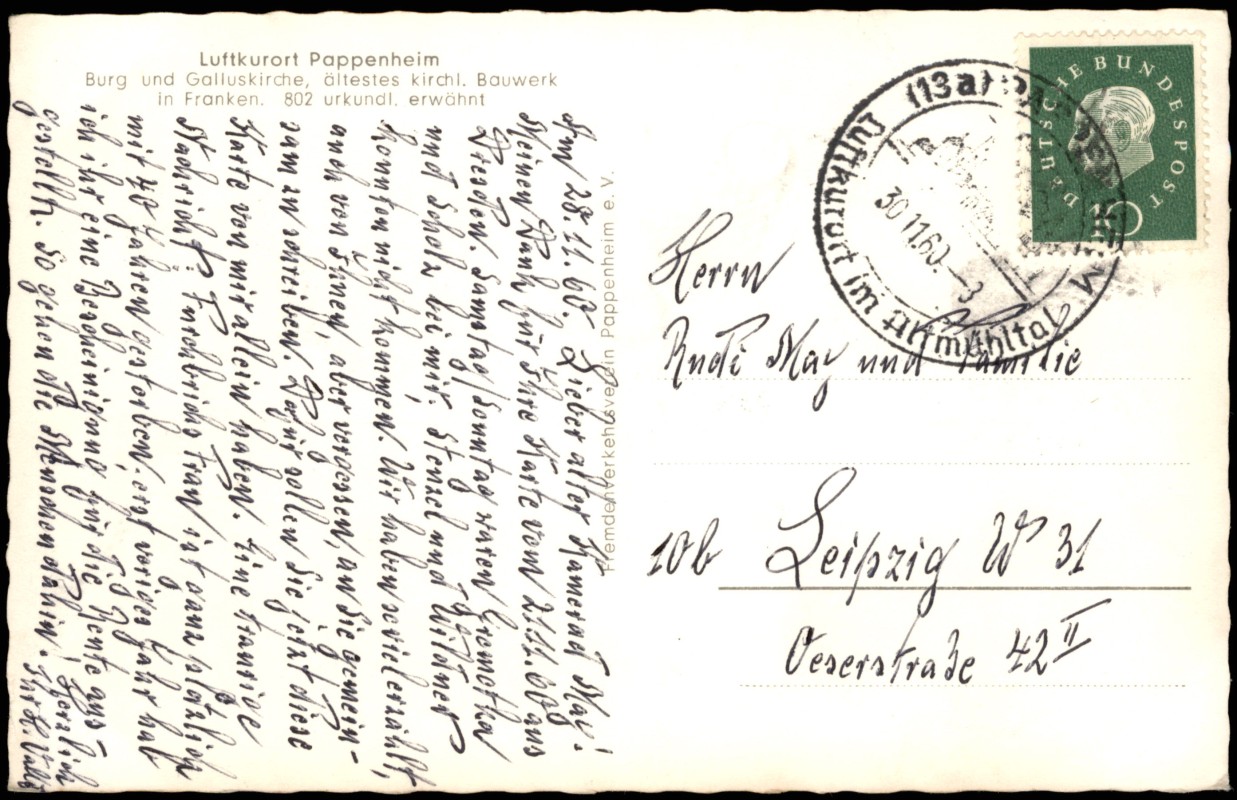 Luftkurort Pappenheim
Burg und Galluskirche, ältestes kirchl. Bauwerk
in Franken. 802 urkundl. erwähnt
Fremdenverkehrsverein Pappenheim e. V.
Am 28.11.60. Lieber alter Kamerad May!
Meinen Dank für Ihre Karte vom 21.11.60 aus
Dresden. Samstag/Sonntag waren
und Scholz bei mir. Stenzel und Wildner
konnten nicht kommen. Wir haben soviel erzählt,
auch von Ihnen, aber vergessen, an Sie gemein-
sam zu schreiben. Dafür sollen Sie jetzt diese
Karte von mir allein haben. Eine traurige
Nachricht: Frau ist ganz plötzlich
mit 40 Jahren gestorben. erst voriges Jahr hab
ich ihr eine Bescheinigung für die Rente aus-
gestellt. So gehen die Menschen dahin. Herzlich
Ihr
DEUTSCHE BUNDESPOST
(13a) PAPPENHEIM
Luftkurort im Altmühltal
30.11.60.
3
Herrn
Rudi May und Familie
10b Leipzig W 31
Oeserstraße 42 II